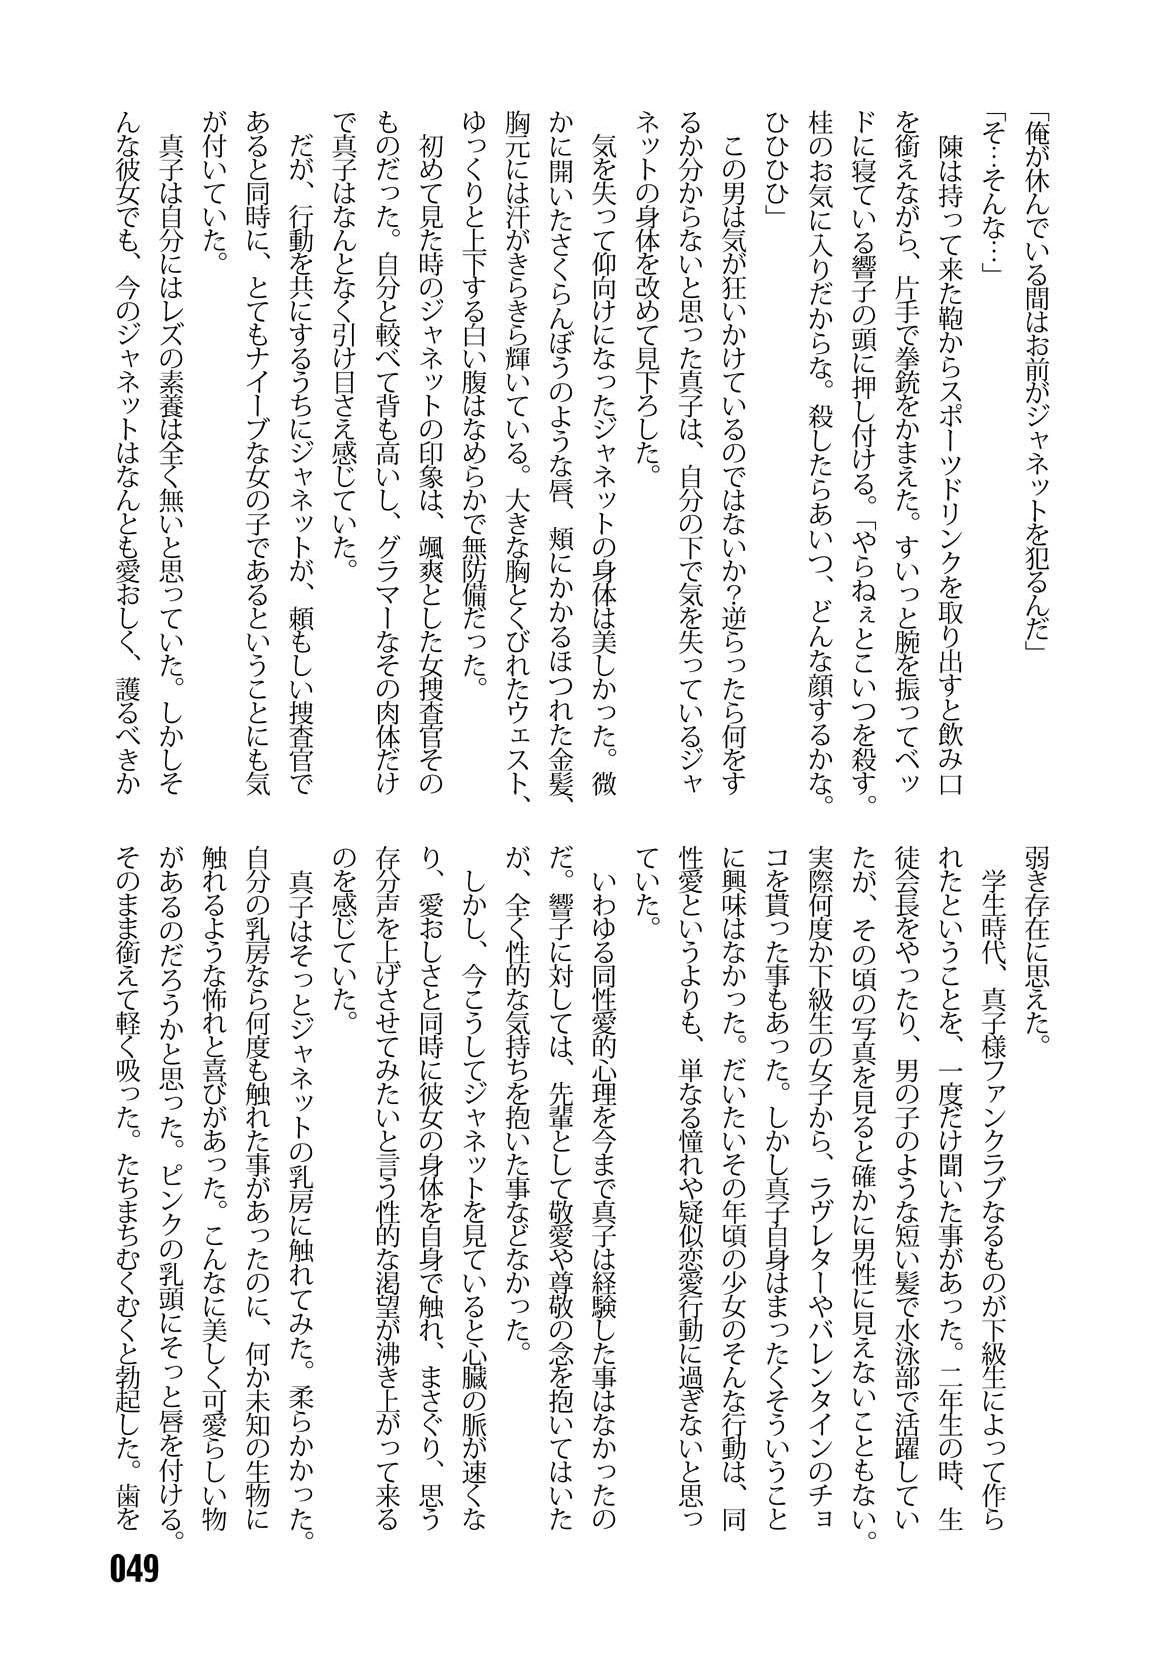 「俺が休んでいる間はお前がジャネットを犯るんだ」
「そ…そんな…」
　陳は持って来た鞄からスポーツドリンクを取り出すと飲み口
を銜えながら、片手で拳銃をかまえた。すいっと腕を振ってベッ
ドに寝ている響子の頭に押し付ける。「やらねぇとこいつを殺す。
桂のお気に入りだからな。殺したらあいつ、どんな顔するかな。
ひひひひ」
　この男は気が狂いかけているのではないか？逆らったら何をす
るか分からないと思った真子は、自分の下で気を失っているジャ
ネットの身体を改めて見下ろした。
　気を失って仰向けになったジャネットの身体は美しかった。微
かに開いたさくらんぼうのような唇、頬にかかるほつれた金髪、
胸元には汗がきらきら輝いている。大きな胸とくびれたウェスト、
ゆっくりと上下する白い腹はなめらかで無防備だった。
　初めて見た時のジャネットの印象は、颯爽とした女捜査官その
ものだった。自分と較べて背も高いし、グラマーなその肉体だけ
で真子はなんとなく引け目さえ感じていた。
　だが、行動を共にするうちにジャネットが、頼もしい捜査官で
あると同時に、とてもナイーブな女の子であるということにも気
が付いていた。
　真子は自分にはレズの素養は全く無いと思っていた。しかしそ
んな彼女でも、今のジャネットはなんとも愛おしく、護るべきか
弱き存在に思えた。
　学生時代、真子様ファンクラブなるものが下級生によって作ら
れたということを、一度だけ聞いた事があった。二年生の時、生
徒会長をやったり、男の子のような短い髪で水泳部で活躍してい
たが、その頃の写真を見ると確かに男性に見えないこともない。
実際何度か下級生の女子から、ラヴレターやバレンタインのチョ
コを貰った事もあった。しかし真子自身はまったくそういうこと
に興味はなかった。だいたいその年頃の少女のそんな行動は、同
性愛というよりも、単なる憧れや疑似恋愛行動に過ぎないと思っ
ていた。
　いわゆる同性愛的心理を今まで真子は経験した事はなかったの
だ。響子に対しては、先輩として敬愛や尊敬の念を抱いてはいた
が、全く性的な気持ちを抱いた事などなかった。
　しかし、今こうしてジャネットを見ていると心臓の脈が速くな
り、愛おしさと同時に彼女の身体を自身で触れ、まさぐり、思う
存分声を上げさせてみたいと言う性的な渇望が沸き上がって来る
のを感じていた。
　真子はそっとジャネットの乳房に触れてみた。柔らかかった。
自分の乳房なら何度も触れた事があったのに、何か未知の生物に
触れるような怖れと喜びがあった。こんなに美しく可愛らしい物
があるのだろうかと思った。ピンクの乳頭にそっと唇を付ける。
そのまま銜えて軽く吸った。たちまちむくむくと勃起した。歯を
049